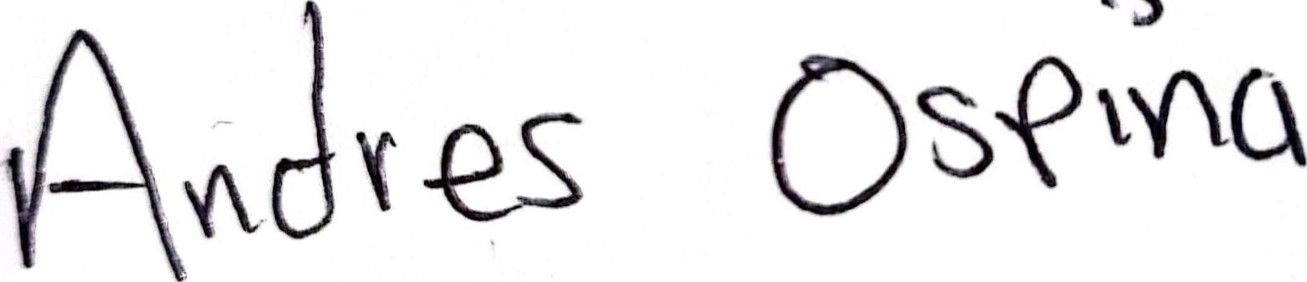 Andres Ospina